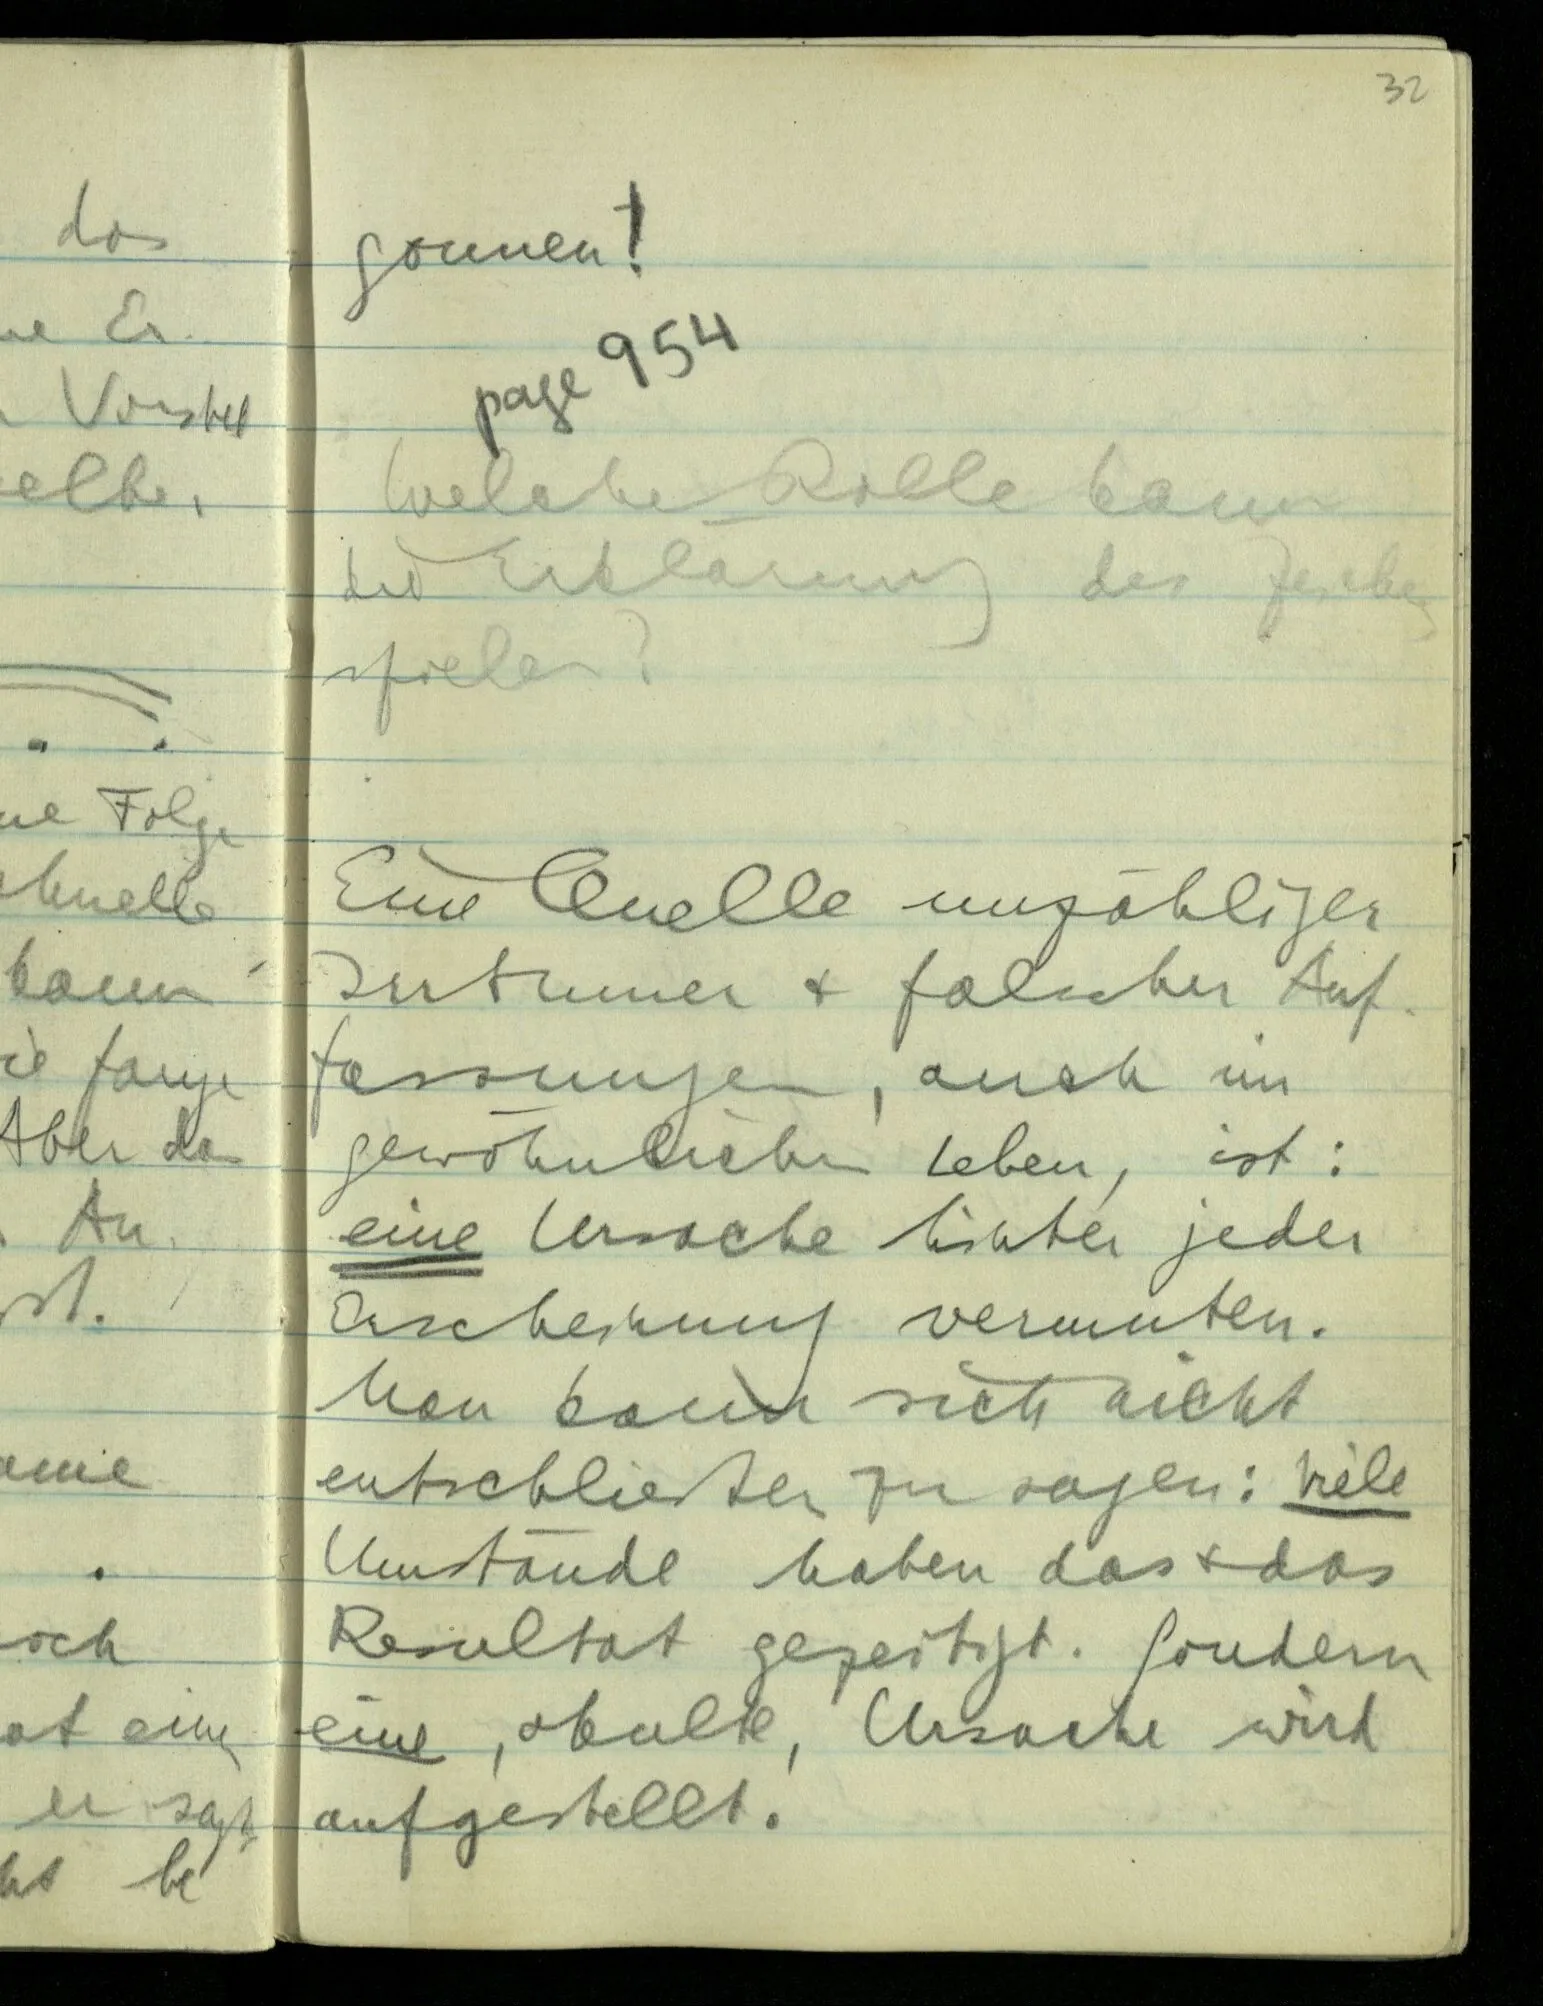 32
das
ne Er-
Vorstel
selbe,
ne Folge
schnelle
kann
ie fange
Aber da
An-
ist.
.
och
at eine
er sagt
be
gonnen!
page 954
Welche Rolle kann
die Erklärung des Zeichens
spielen?
Eine Quelle unzähliger
Irrtümer & falscher Auf-
fassungen, auch im
gewöhnlichen Leben, ist:
eine Ursache hinter jeder
Erscheinung vermuten.
Man kann sich nicht
entschließen zu sagen: viele
Umstände haben das & das
Resultat gezeitigt. Sondern
eine, okulte, Ursache wird
aufgestellt.